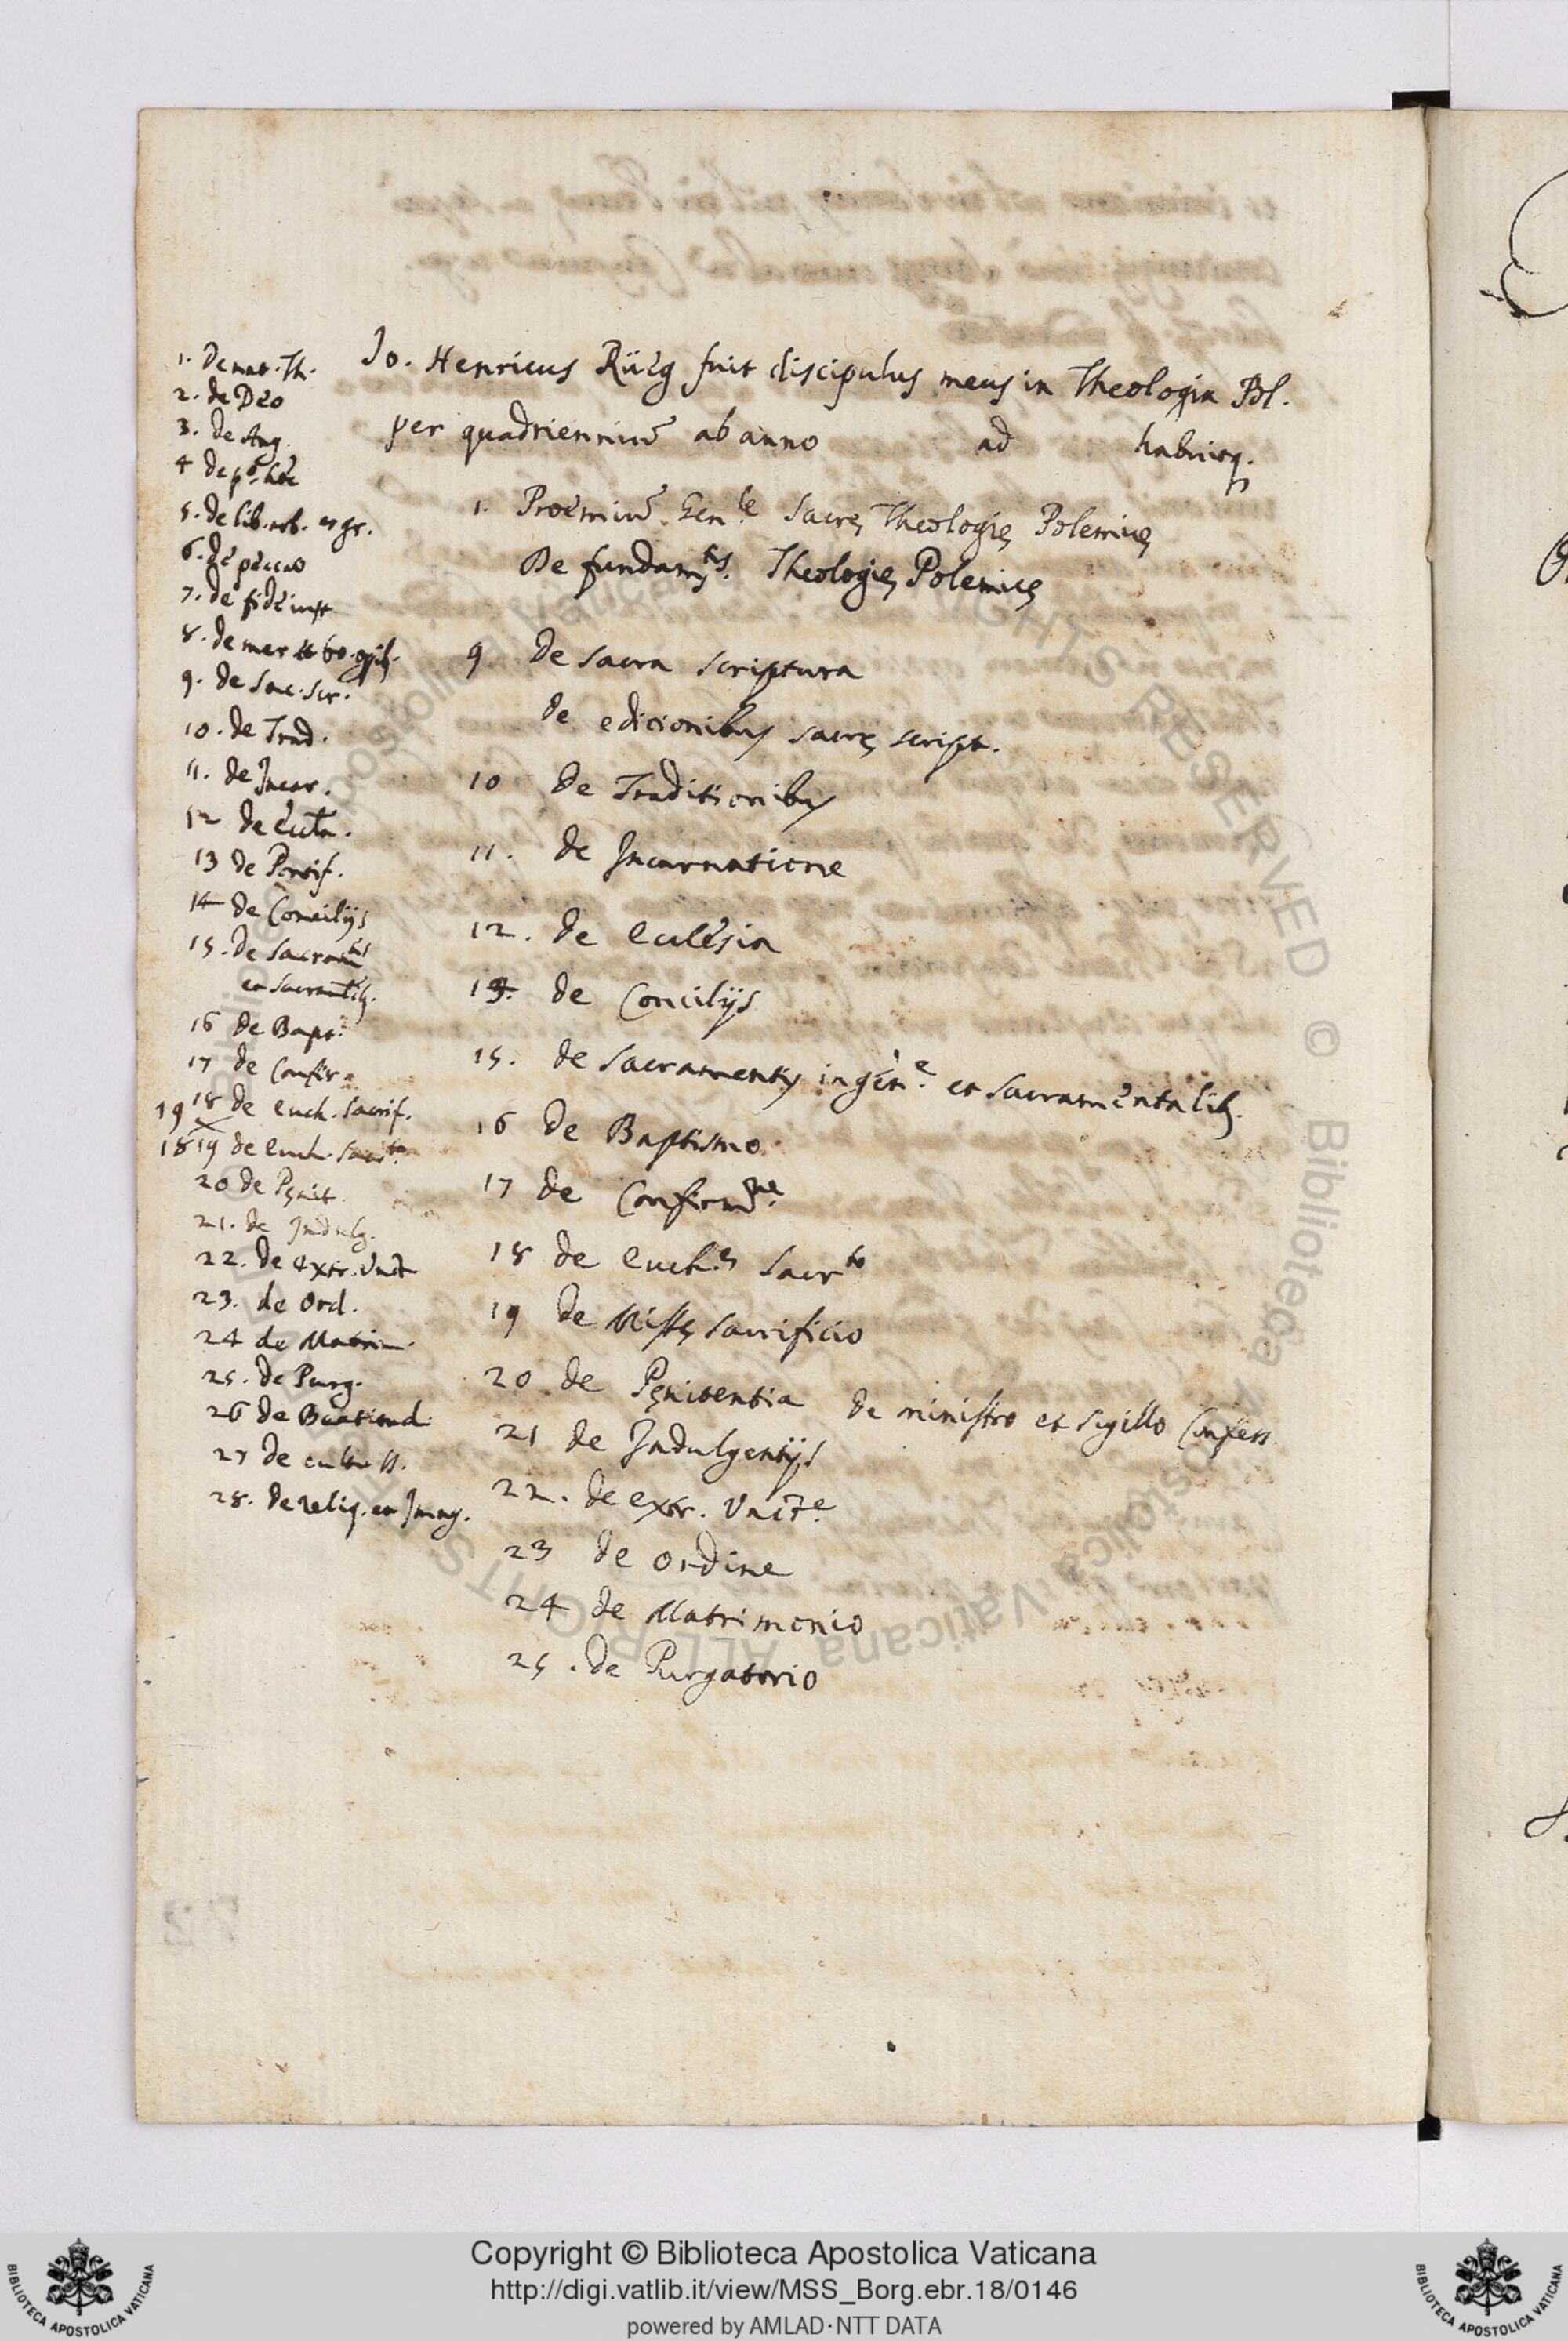 1. De nat. Th.
2. de Deo
3. de Ang.
4 de p.º hōē
5. de lib. arb. et gr.
6. de peccao
7. de fide iust
8. de mer et bo. opib.
9. de Sac. Scr.
10. de Trad.
11. de Incar.
12 de Eccła.
13 de Pontif.
14 de Concilijs
15. de Sacramtis
et Sacramtlib.
16 de Bapt.º
17 de Confir.
19 18 de Euch. Sacrif.
18 19 de Euch. Sacrto.
20 de Pęnit.
21. de Indulg.
22. de extr. Unct
23. de Ord.
24 de Matrim.
25. de Purg.
26 de Beatitud.
27 de cultu SS.
28. de reliq. et Imag.
Jo. Henricus Rüeg fuit discipulus meus in Theologia Pol.
per quadrienniū ab anno ad habuitq.
1. Proemiū Gen.le Sacrę Theologię Polemicę
De fundam.tis Theologię Polemicę
9 de sacra scriptura
de edicionibus sacrę script.
10 de Traditionibus
11. de Incarnatione
12. de Ecclesia
14. de Concilijs
15. de Sacramentis in gen.e et Sacramentalib.
16 de Baptismo
17 de Confirm.ne
18 de Euch.æ Sacr.to
19 de Missę Sacrificio
20 de Pęnitentia de ministro et sigillo Confess.
21 de Indulgentijs
22. de extr. Unct.e
23 de Ordine
24 de Matrimonio
25. de Purgatorio
BIBLIOTECA APOSTOLICA VATICANA
Copyright © Biblioteca Apostolica Vaticana
http://digi.vatlib.it/view/MSS_Borg.ebr.18/0146
powered by AMLAD·NTT DATA
BIBLIOTECA APOSTOLICA VATICANA